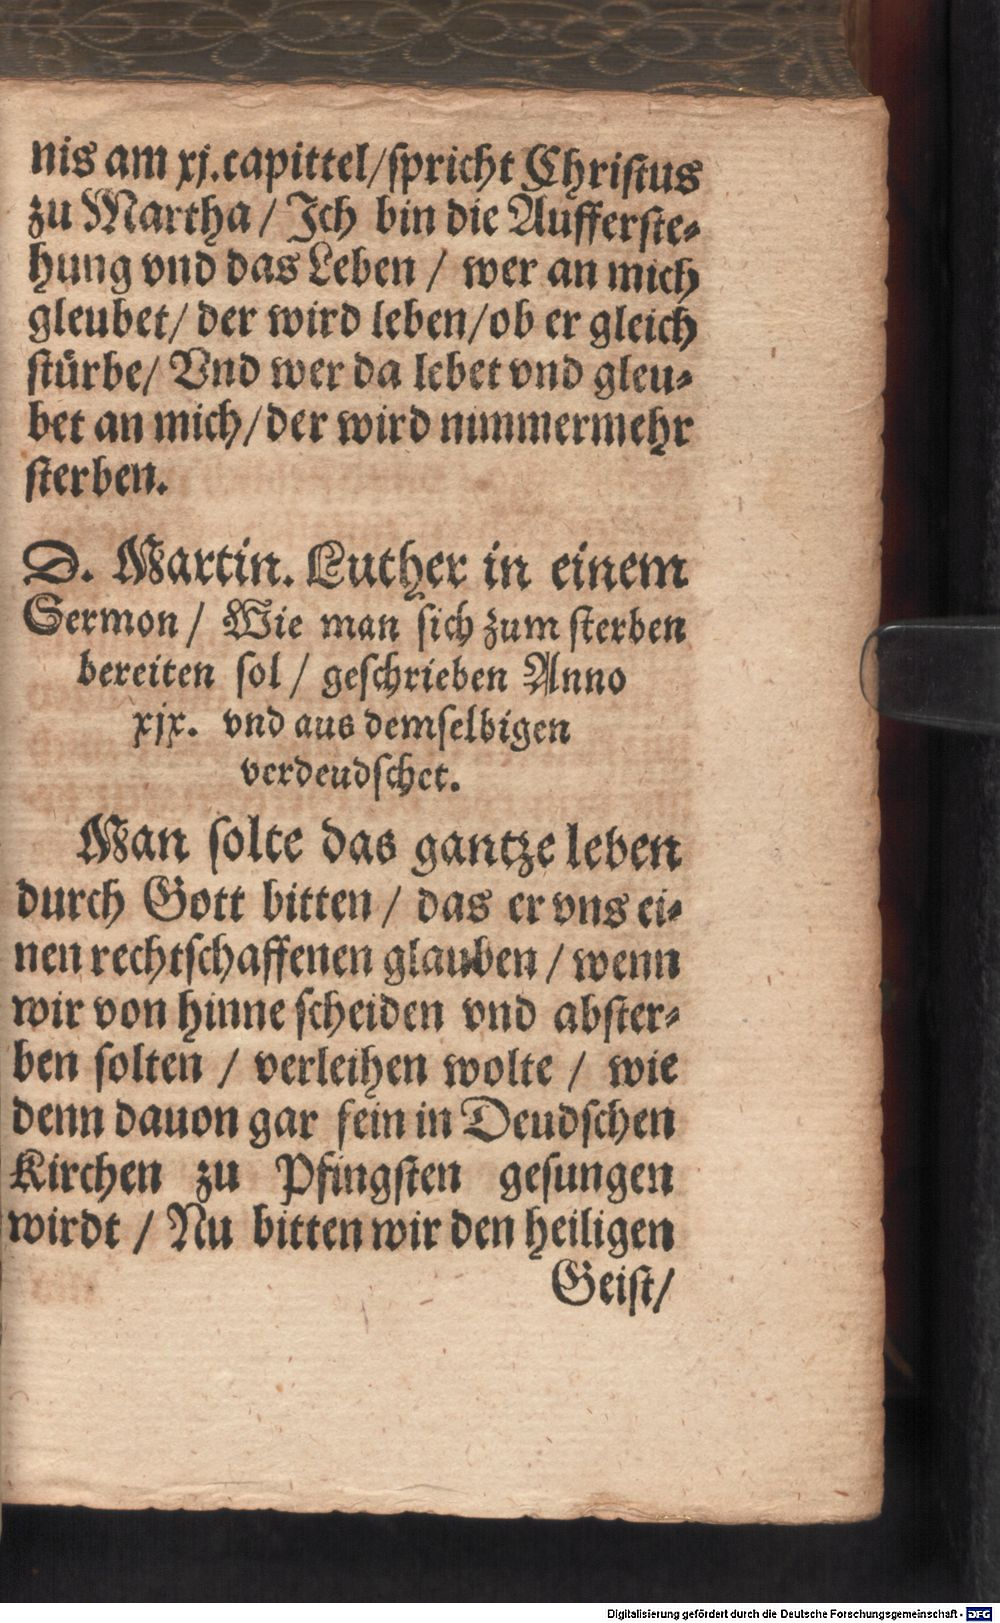 nis am xj. capittel/ spricht Christus
zu Martha / Ich bin die Aufferste-
hung vnd das Leben / wer an mich
gleubet/ der wird leben/ ob er gleich
stürbe/ Vnd wer da lebet vnd gleu-
bet an mich/ der wird nimmermehr
sterben.
D. Martin. Luther in einem
Sermon / Wie man sich zum sterben
bereiten sol / geschrieben Anno
xjx. vnd aus demselbigen
verdeudschet.
Man solte das gantze leben
durch Gott bitten / das er vns ei-
nen rechtschaffenen glauben / wenn
wir von hinne scheiden vnd abster-
ben solten / verleihen wolte / wie
denn dauon gar fein in Deudschen
Kirchen zu Pfingsten gesungen
wirdt / Nu bitten wir den heiligen
Geist/
Digitalisierung gefördert durch die Deutsche Forschungsgemeinschaft - DFG